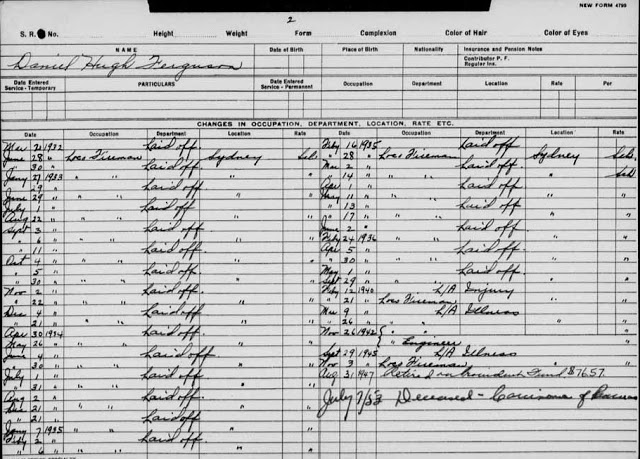 NEW FORM 4799
2
S. R. No. Height Weight Form Complexion Color of Hair Color of Eyes
NAME Date of Birth Place of Birth Nationality Insurance and Pension Notes
Daniel Hugh Ferguson Contributor P. F.
Regular Ins.
Date Entered Service - Temporary PARTICULARS Date Entered Service - Permanent Occupation Department Location Rate Per
CHANGES IN OCCUPATION, DEPARTMENT, LOCATION, RATE ETC.
Date Occupation Department Location Rate Date Occupation Department Location Rate
1932 Laid off
June 28 " Loco Fireman Sydney Sch.
30 " Laid off
Jany 27 1933 " "
" 29 " Laid off
June 29 " " "
July 1 " Laid off
Aug 12 " " "
Sept 3 " Laid off
" 6 " " "
" 11 " Laid off
Oct 4 " " "
" 5 " Laid off
" 30 " " "
Nov 2 " Laid off
" 22 " " "
Dec 4 " Laid off
" 21 " " "
Apr 30 1934 Laid off
May 26 " " "
June 4 " Laid off
" 30 " " "
July 1 " Laid off
" 31 " " "
Aug 2 " Laid off
Dec 21 " " "
" 21 " Laid off
Jany 7 1935 " "
Feby 2 " Laid off
" 6 " " "
Feby 16 1935 Laid off
" 28 " Loco Fireman Sydney Sch.
Mar 2 " Laid off
" 14 " " " Sch
Apr 1 " Laid off
May 11 " " "
" 13 " Laid off
" 17 " " "
June 2 " Laid off
Feby 24 1936 " "
Apr 5 " Laid off
" 30 " " "
May 1 " Laid off
Sept 29 " " "
Feby 12 1940 L/A Injury
" 21 " Loco Fireman
Mar 9 " L/A Illness
" 26 " " "
Nov 26 1942 " "
" Engineer
Sept 29 1945 L/A Illness
Nov 3 " Loco Fireman
Aug 31 1947 Retired on Provident Fund $76.57.
July 7/53 Deceased - Carcinoma of